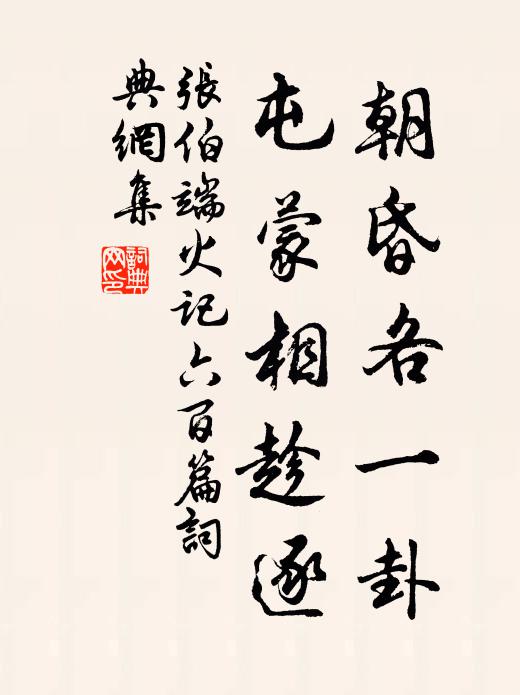 朝昏各一卦
屯蒙相趁逐
張伯端火記六百篇詞
典網集
詞典
网印